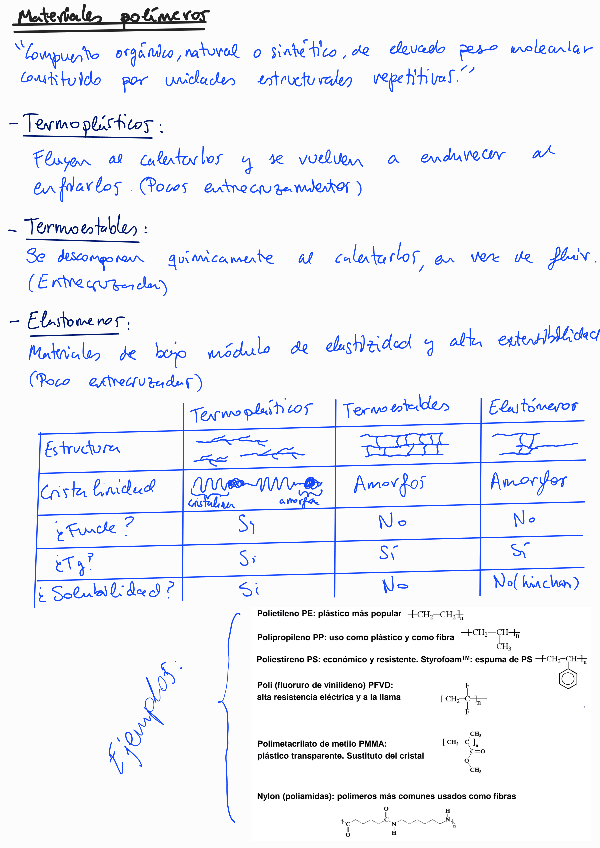 Materiales polímeros
"Compuesto orgánico, natural o sintético, de elevado peso molecular
constituido por unidades estructurales repetitivas."
- Termoplásticos:
Fluyen al calentarlos y se vuelven a endurecer al
enfriarlos. (Pocos entrecruzamientos)
- Termoestables:
Se descomponen químicamente al calentarlos, en vez de fluir.
(Entrecruzados)
- Elastómeros:
Materiales de bajo módulo de elastizidad y alta extensibilidad
(Poco entrecruzados)
Termoplásticos Termoestables Elastómeros
Estructura
Cristalinidad cristalinas amorfas Amorfos Amorfos
¿Funde? Sí No No
¿Tg? Sí Sí Sí
¿Solubilidad? Sí No No (hinchan)
Ejemplos:
Polietileno PE: plástico más popular [CH2-CH2]n
Polipropileno PP: uso como plástico y como fibra [CH2-CH]n
CH3
Poliestireno PS: económico y resistente. Styrofoam™: espuma de PS [CH2-CH]n
Poli (fluoruro de vinilideno) PFVD:
alta resistencia eléctrica y a la llama
F
[CH2-C]n
F
Polimetacrilato de metilo PMMA:
plástico transparente. Sustituto del cristal
CH3
[CH2 C]n
C=O
O
CH3
Nylon (poliamidas): polímeros más comunes usados como fibras
O H
C N N n
O H